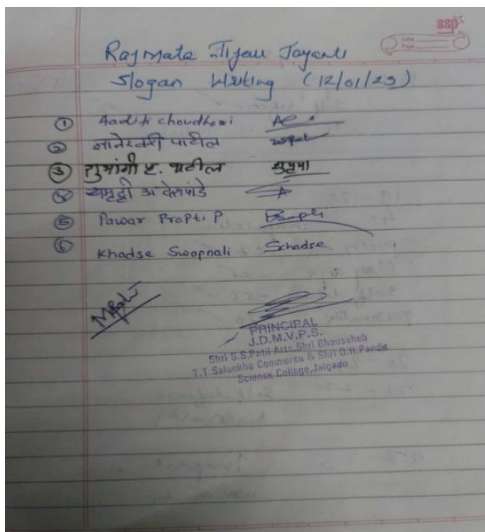 ssp
Rajmata Jijau Jayanti
Slogan Writing (12/01/23)
① Aaditi choudhari
② ज्ञानेश्वरी पाटील
③ शुभांगी ह. पाटील
④ समृद्धी अ देशपांडे
⑤ Pawar Prapti P.
⑥ Khadse Swapnali Schadse
PRINCIPAL
J.D.M.V.P.S.
Shri S.S.Patil Arts, Shri Bhausaheb
T.T.Salunkhe Commerce & Shri G.R.Pandit
Science College, Jalgaon